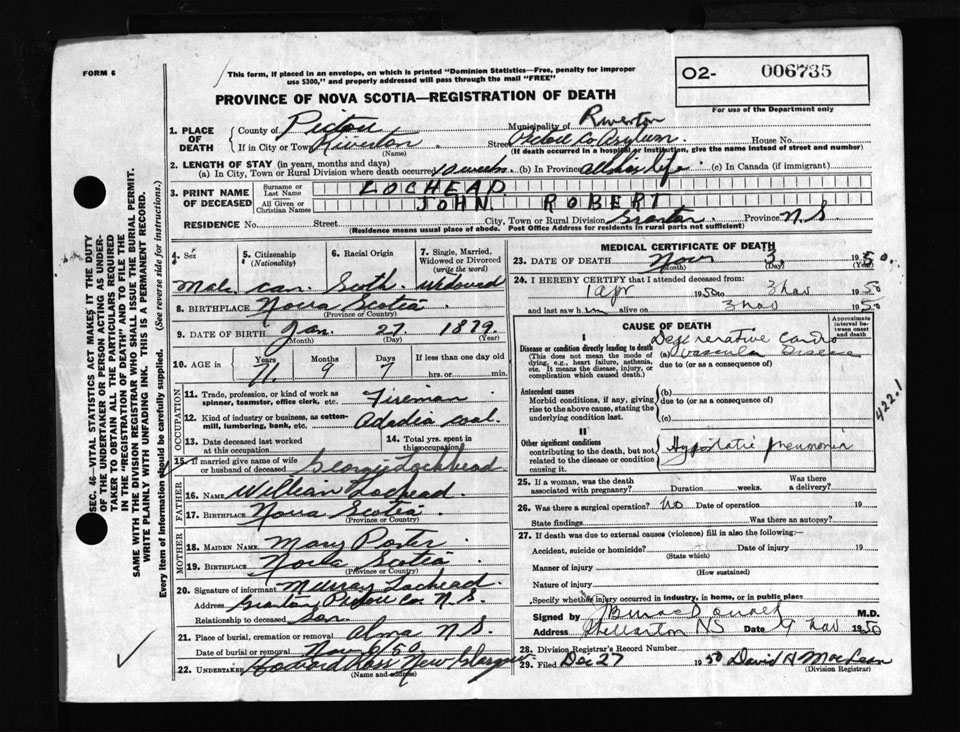 FORM 6
This form, if placed in an envelope, on which is printed "Dominion Statistics—Free, penalty for improper
use $300," and properly addressed will pass through the mail "FREE"
O2- 006735
For use of the Department only
PROVINCE OF NOVA SCOTIA—REGISTRATION OF DEATH
1. PLACE OF DEATH
County of Pictou Municipality of Riverton
If in City or Town Riverton (Name) Street Pictou Co Asylum House No.
(If death occurred in a hospital or institution, give the name instead of street and number)
2. LENGTH OF STAY (in years, months and days)
(a) In City, Town or Rural Division where death occurred (b) In Province all his life (c) In Canada (if immigrant)
3. PRINT NAME OF DECEASED
Surname or Last Name LOCHEAD
All Given or Christian Names JOHN ROBERT
RESIDENCE No. Street City, Town or Rural Division Granton Province N.S.
(Residence means usual place of abode. Post Office Address for residents in rural parts not sufficient)
4. Sex 5. Citizenship (Nationality) 6. Racial Origin 7. Single, Married, Widowed or Divorced (write the word)
Male Can. Scoth. Widowed
8. BIRTHPLACE Nova Scotia
(Province or Country)
9. DATE OF BIRTH Jan. 27. 1879.
(Month) (Day) (Year)
10. AGE in Years Months Days If less than one day old
71. 9 7 hrs. or min.
OCCUPATION
11. Trade, profession, or kind of work as spinner, teamster, office clerk, etc. Fireman
12. Kind of industry or business, as cotton-mill, lumbering, bank, etc. Acadia coal.
13. Date deceased last worked at this occupation 14. Total yrs. spent in this occupation
15. If married give name of wife or husband of deceased Georgie Lochhead
FATHER
16. NAME William Lochead.
17. BIRTHPLACE Nova Scotia
(Province or Country)
MOTHER
18. MAIDEN NAME Mary Porter
19. BIRTHPLACE Nova Scotia
(Province or Country)
20. Signature of informant Murray Lochead.
Address Granton Pictou Co. N.S.
Relationship to deceased son.
21. Place of burial, cremation or removal Alma N.S.
Date of burial or removal Nov 6/50.
22. UNDERTAKER Ross New Glasgow
(Name and address)
MEDICAL CERTIFICATE OF DEATH
23. DATE OF DEATH Nov. 3, 1950.
(Month) (Day) (Year)
24. I HEREBY CERTIFY that I attended deceased from:
1 Apr 1950 to 3 Nov 1950
and last saw him alive on 3 Nov 1950
CAUSE OF DEATH
Approximate interval between onset and death
I
Disease or condition directly leading to death
(This does not mean the mode of dying, e.g., heart failure, asthenia, etc. It means the disease, injury, or complication which caused death.)
(a) Degenerative Cardio Vascular Disease
due to (or as a consequence of)
Antecedent causes
Morbid conditions, if any, giving rise to the above cause, stating the underlying condition last.
(b)
due to (or as a consequence of)
(c)
II
Other significant conditions
contributing to the death, but not related to the disease or condition causing it.
Hypostatic pneumonia
422.1
25. If a woman, was the death associated with pregnancy? Duration weeks. Was there a delivery?
26. Was there a surgical operation? No Date of operation 19
State findings Was there an autopsy?
27. If death was due to external causes (violence) fill in also the following:—
Accident, suicide or homicide? Date of injury 19
(State which)
Manner of injury
(How sustained)
Nature of injury
Specify whether injury occurred in industry, in home, or in public place
Signed by M.D.
Address Stellarton NS Date 9 Nov 1950
28. Division Registrar's Record Number
29. Filed Dec 27 1950 David H MacLean
(Division Registrar)
SEC. 46—VITAL STATISTICS ACT MAKES IT THE DUTY
OF THE UNDERTAKER OR PERSON ACTING AS UNDER-
TAKER TO OBTAIN ALL THE PARTICULARS REQUIRED
IN THE "REGISTRATION OF DEATH" AND TO FILE THE
SAME WITH THE DIVISION REGISTRAR WHO SHALL ISSUE THE BURIAL PERMIT.
WRITE PLAINLY WITH UNFADING INK. THIS IS A PERMANENT RECORD.
Every item of information should be carefully supplied. (See reverse side for instructions.)